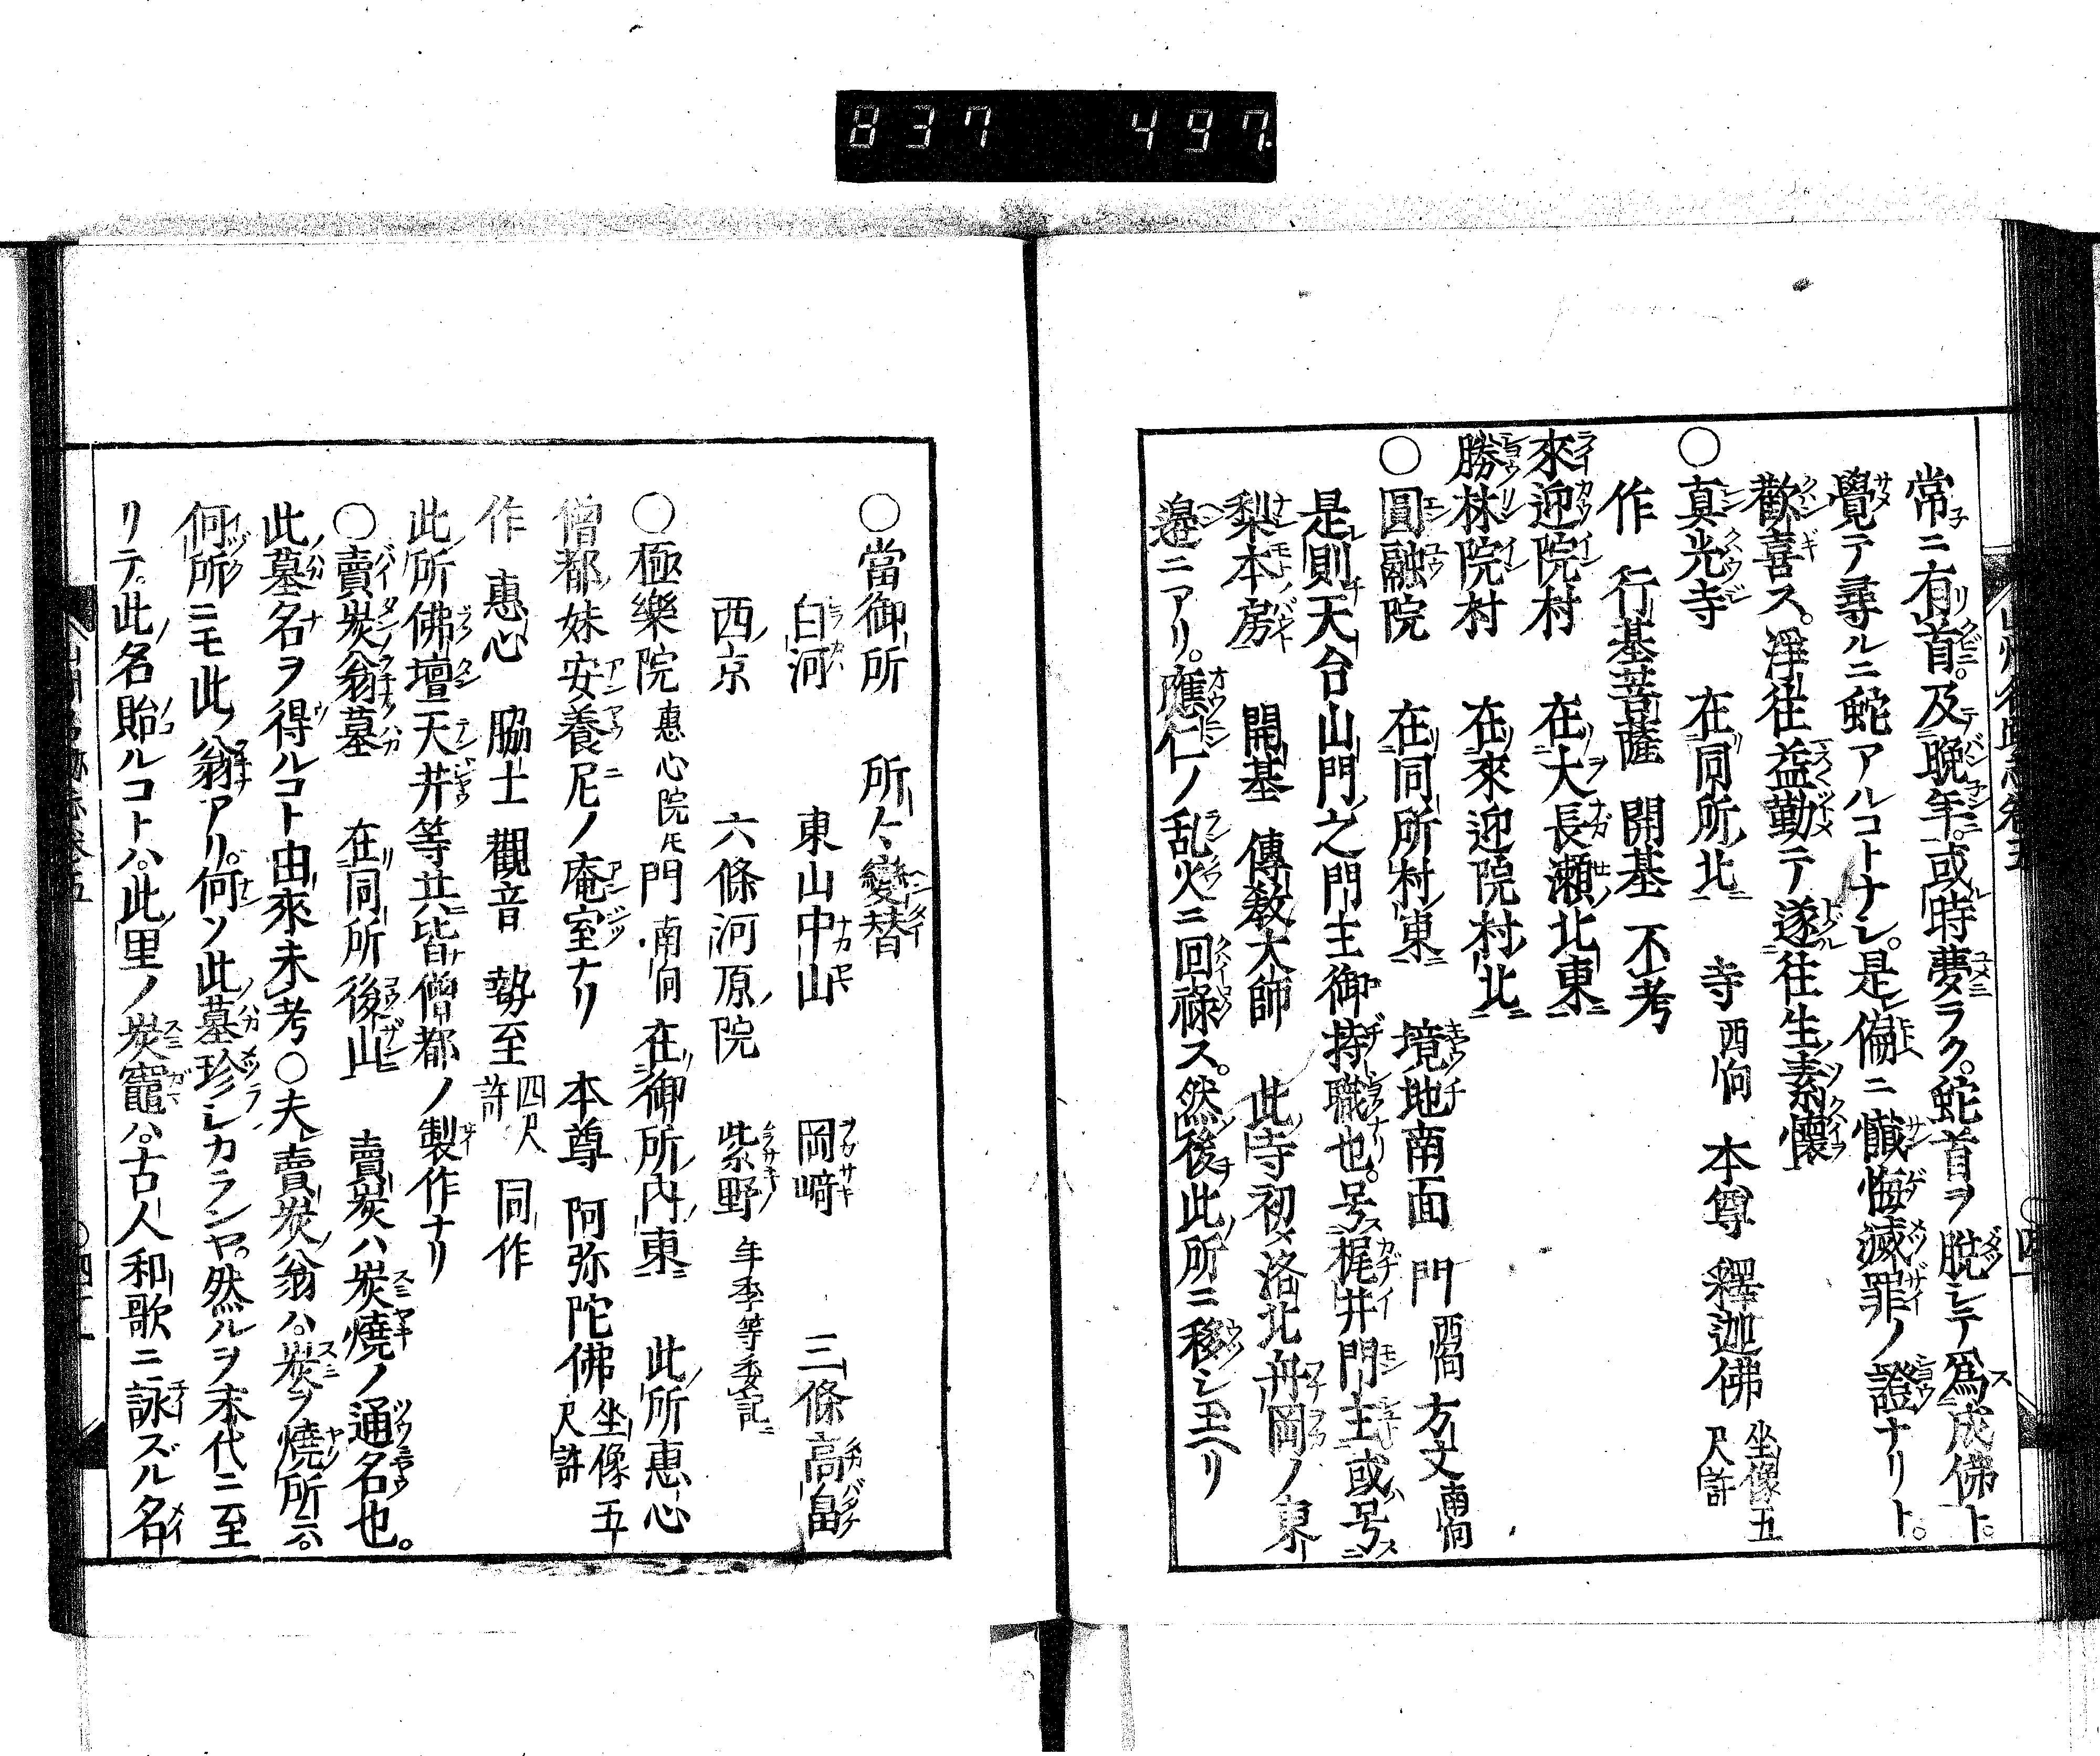 837 497
常ニ有首。及晩年。或時夢ラク。蛇首ヲ脱シテ爲成佛ト。
覺テ尋ルニ蛇アルコトナシ。是偏ニ懺悔滅罪ノ證ナリト。
歡喜ス。淨往益勤テ遂往生素懷
○真光寺 在同所北 寺西向 本尊 釋迦佛 坐像五尺許
作 行基菩薩 開基 不考
來迎院村 在大長瀬北東
勝林院村 在來迎院村北
○圓融院 在同所村東 境地南面 門西向 方丈南向
是則天台山門之門主御持職也。号梶井門主或号
梨本房 開基 傳教大師 此寺初メ洛北舟岡ノ東
邉ニアリ。應仁ノ乱火ニ回禄ス。然後此所ニ移シ玉ヘリ
○當御所 所々變替
白河 東山中山 岡﨑 三條高畠
西京 六條河原院 紫野 年季等委記
○極樂院 惠心院Ɐ 門南向 在御所内東 此所惠心
僧都妹安養尼ノ庵室ナリ 本尊 阿弥陀佛 坐像五尺許
作 惠心 脇士 觀音 勢至 四尺許 同作
此所佛壇天井等共皆僧都ノ製作ナリ
○賣炭翁墓 在同所後山 賣炭ハ炭燒ノ通名也。
此墓名ヲ得ルコト由來未考○夫賣炭翁ハ。炭ヲ燒所云。
何所ニモ此ノ翁アリ。何ソ此墓珍シカランヤ。然ルヲ末代ニ至
リテ。此名貽ルコトハ。此里ノ炭竈ハ。古人和歌ニ詠ズル名